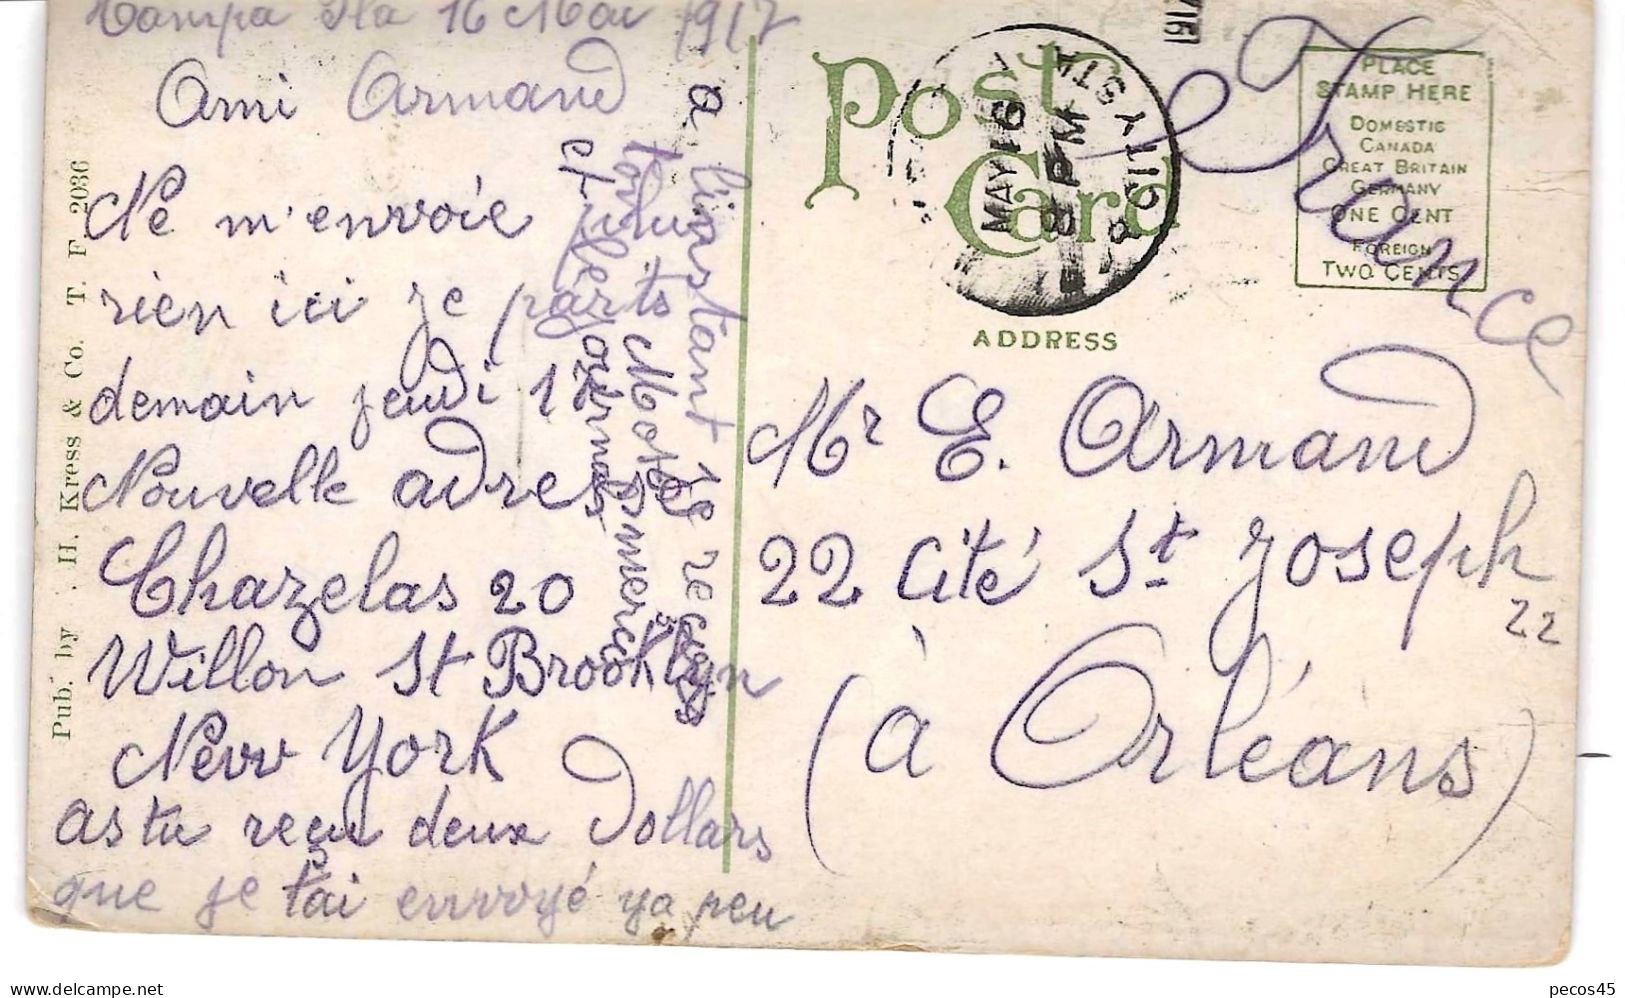 Tampa Fla 16 Mai 1917
Ami Armand
Ne m'envoie plus
rien ici je parts
demain jeudi 17
Nouvelle adresse
Chazelas 20
Willon St Brooklyn
New York
as tu reçu deux Dollars
que je t'ai envoyé ya peu
a l'instant je reçois
ton
Mose merci
et les journaux
Pub. by H. Kress & Co. T. F. 2036
Post
Card
MAY 16
8 PM
CITY STA
ADDRESS
PLACE
STAMP HERE
DOMESTIC
CANADA
GREAT BRITAIN
GERMANY
ONE CENT
FOREIGN
TWO CENTS
France
Mr E. Armand
22 Cité St Joseph
22
(à Orléans)
pecos45